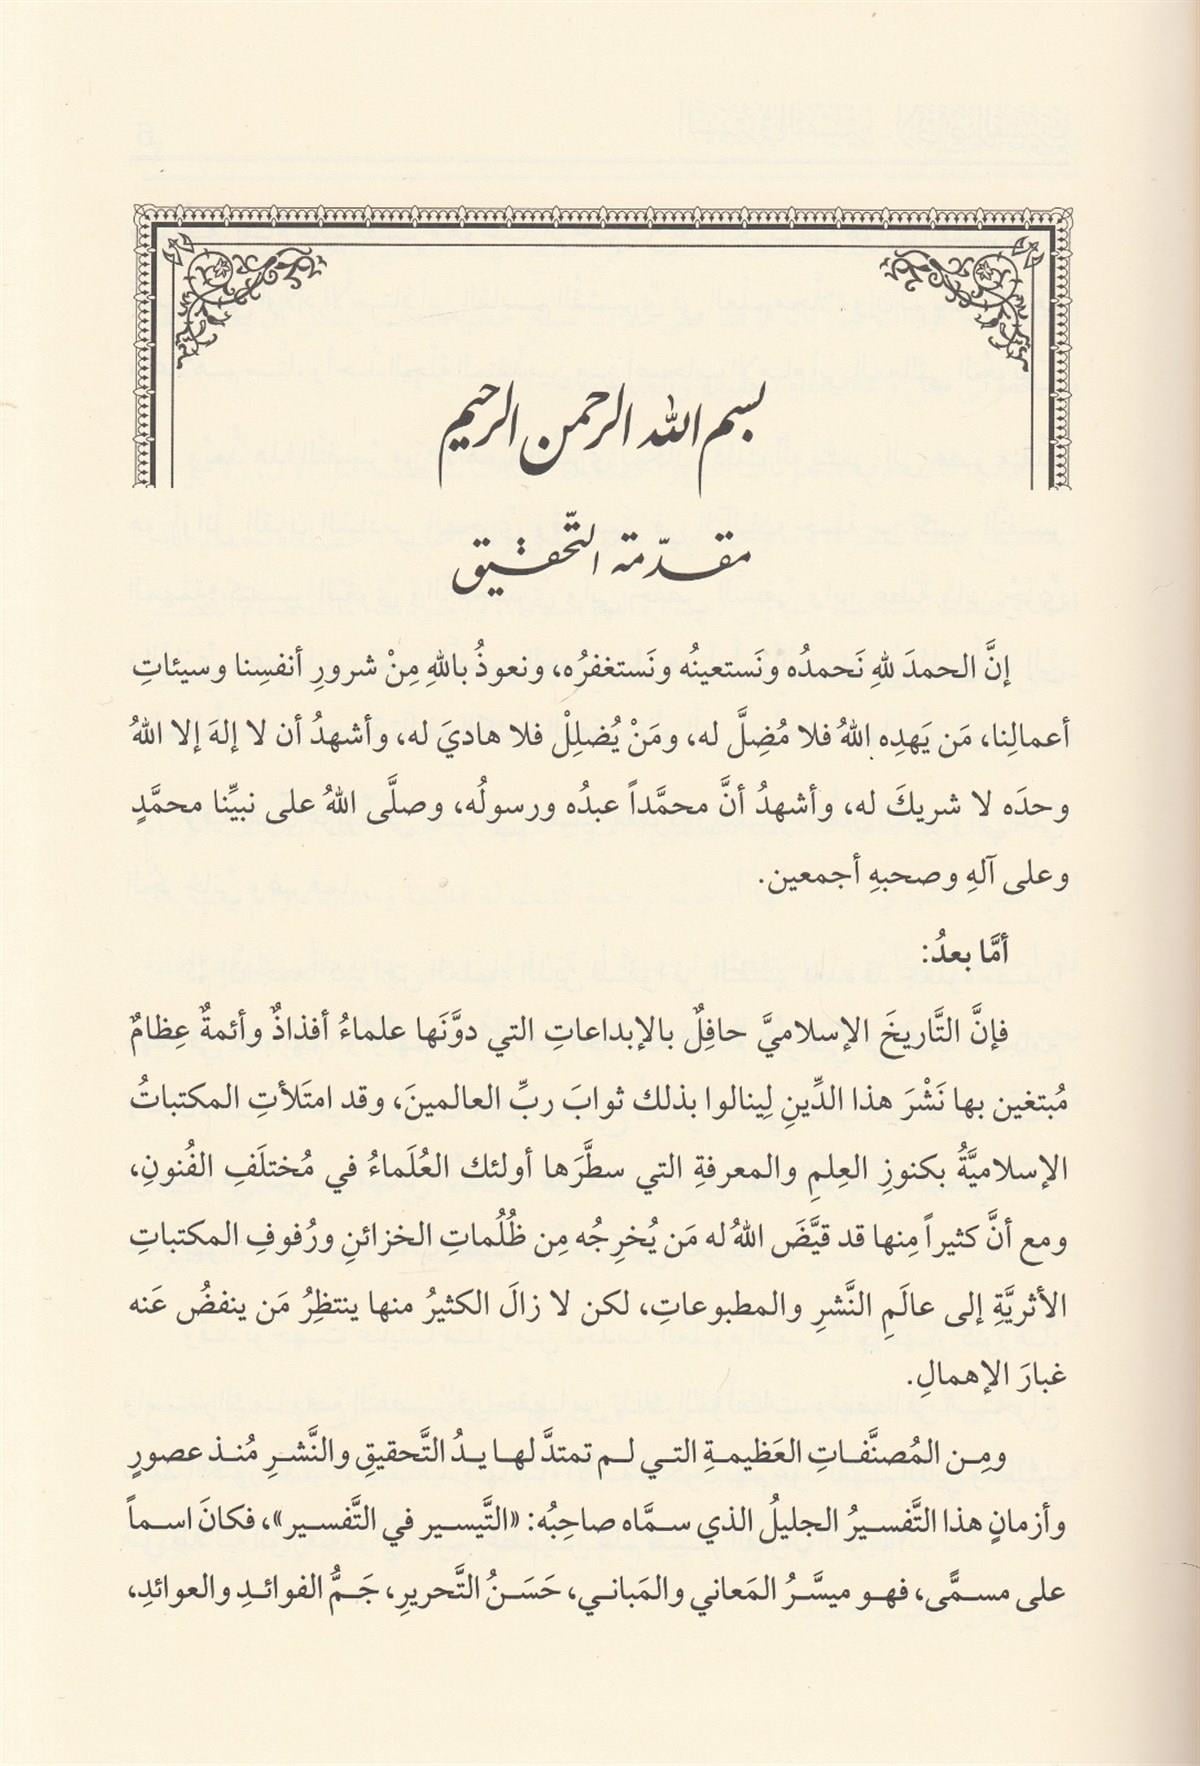 بسم الله الرحمن الرحيم
مقدّمة التّحقيق
إنَّ الحمدَ للهِ نَحمدُه ونَستعينُه ونَستغفرُه، ونعوذُ باللهِ مِنْ شرورِ أنفسِنا وسيئاتِ
أعمالِنا، مَن يَهدِه اللهُ فلا مُضِلَّ له، ومَنْ يُضلِلْ فلا هاديَ له، وأشهدُ أن لا إلهَ إلا اللهُ
وحدَه لا شريكَ له، وأشهدُ أنَّ محمَّداً عبدُه ورسولُه، وصلَّى اللهُ على نبيِّنا محمَّدٍ
وعلى آلهِ وصحبهِ أجمعين.
أمَّا بعدُ:
فإنَّ التَّاريخَ الإسلاميَّ حافِلٌ بالإبداعاتِ التي دوَّنَها علماءُ أفذاذٌ وأئمةٌ عِظامٌ
مُبتغين بها نَشْرَ هذا الدِّينِ لِينالوا بذلك ثوابَ ربِّ العالمينَ، وقد امتَلأتِ المكتباتُ
الإسلاميَّةُ بكنوزِ العِلمِ والمعرفةِ التي سطَّرَها أولئك العُلَماءُ في مُختلَفِ الفُنونِ،
ومع أنَّ كثيراً مِنها قد قيَّضَ اللهُ له مَن يُخرِجُه مِن ظُلُماتِ الخزائنِ ورُفوفِ المكتباتِ
الأثريَّةِ إلى عالَمِ النَّشرِ والمطبوعاتِ، لكن لا زالَ الكثيرُ منها ينتظِرُ مَن ينفضُ عَنه
غبارَ الإهمالِ.
ومِـن المُصنَّفـاتِ العَظيمـةِ التـي لـم تمتدَّ لهـا يـدُ التَّحقيقِ والنَّشـرِ مُنـذ عصورٍ
وأزمانٍ هذا التَّفسـيرُ الجليلُ الذي سـمَّاه صاحِبُه: «التَّيسـير في التَّفسـير»، فكانَ اسـماً
على مسـمًّى، فهـو ميسَّـرُ المَعاني والمَباني، حَسَـنُ التَّحريرِ، جَـمُّ الفوائـدِ والعوائدِ،